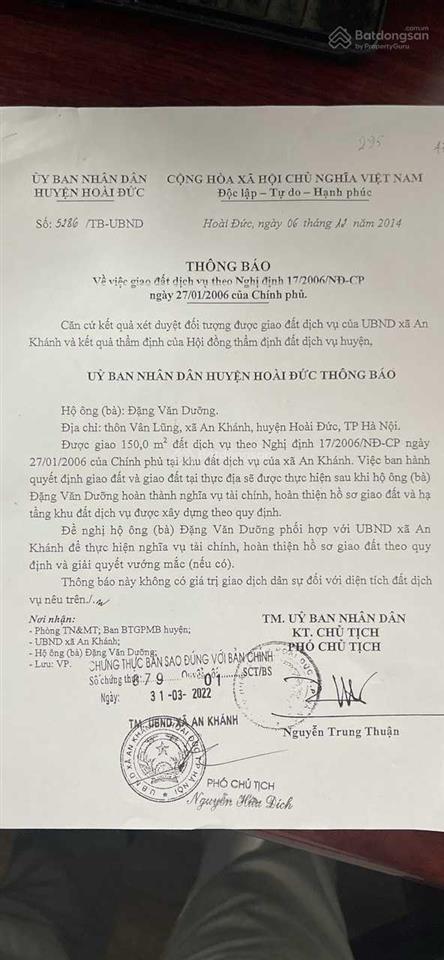 Batdongsan
.com.vn
by PropertyGuru
295
ỦY BAN NHÂN DÂN
HUYỆN HOÀI ĐỨC
CỘNG HÒA XÃ HỘI CHỦ NGHĨA VIỆT NAM
Độc lập – Tự do – Hạnh phúc
Số: 5286 /TB-UBND
Hoài Đức, ngày 06 tháng 12 năm 2014
THÔNG BÁO
Về việc giao đất dịch vụ theo Nghị định 17/2006/NĐ-CP
ngày 27/01/2006 của Chính phủ.
Căn cứ kết quả xét duyệt đối tượng được giao đất dịch vụ của UBND xã An
Khánh và kết quả thẩm định của Hội đồng thẩm định đất dịch vụ huyện,
UỶ BAN NHÂN DÂN HUYỆN HOÀI ĐỨC THÔNG BÁO
Hộ ông (bà): Đặng Văn Dưỡng.
Địa chỉ: thôn Vân Lũng, xã An Khánh, huyện Hoài Đức, TP Hà Nội.
Được giao 150,0 m² đất dịch vụ theo Nghị định 17/2006/NĐ-CP ngày
27/01/2006 của Chính phủ tại khu đất dịch vụ của xã An Khánh. Việc ban hành
quyết định giao đất và giao đất tại thực địa sẽ được thực hiện sau khi hộ ông (bà)
Đặng Văn Dưỡng hoàn thành nghĩa vụ tài chính, hoàn thiện hồ sơ giao đất và hạ
tầng khu đất dịch vụ được xây dựng theo quy định.
Đề nghị hộ ông (bà) Đặng Văn Dưỡng phối hợp với UBND xã An
Khánh để thực hiện nghĩa vụ tài chính, hoàn thiện hồ sơ giao đất theo quy
định và giải quyết vướng mắc (nếu có).
Thông báo này không có giá trị giao dịch dân sự đối với diện tích đất dịch
vụ nêu trên./.
Nơi nhận:
- Phòng TN&MT; Ban BTGPMB huyện;
- UBND xã An Khánh;
- Hộ ông (bà) Đặng Văn Dưỡng;
- Lưu: VP.
TM. UỶ BAN NHÂN DÂN
KT. CHỦ TỊCH
PHÓ CHỦ TỊCH
CHỨNG THỰC BẢN SAO ĐÚNG VỚI BẢN CHÍNH
Số chứng thực: 879 Quyển số: 01 SCT/BS
Ngày: 31-03-2022
TM. UBND XÃ AN KHÁNH
Nguyễn Trung Thuận
PHÓ CHỦ TỊCH
Nguyễn Hữu Đích